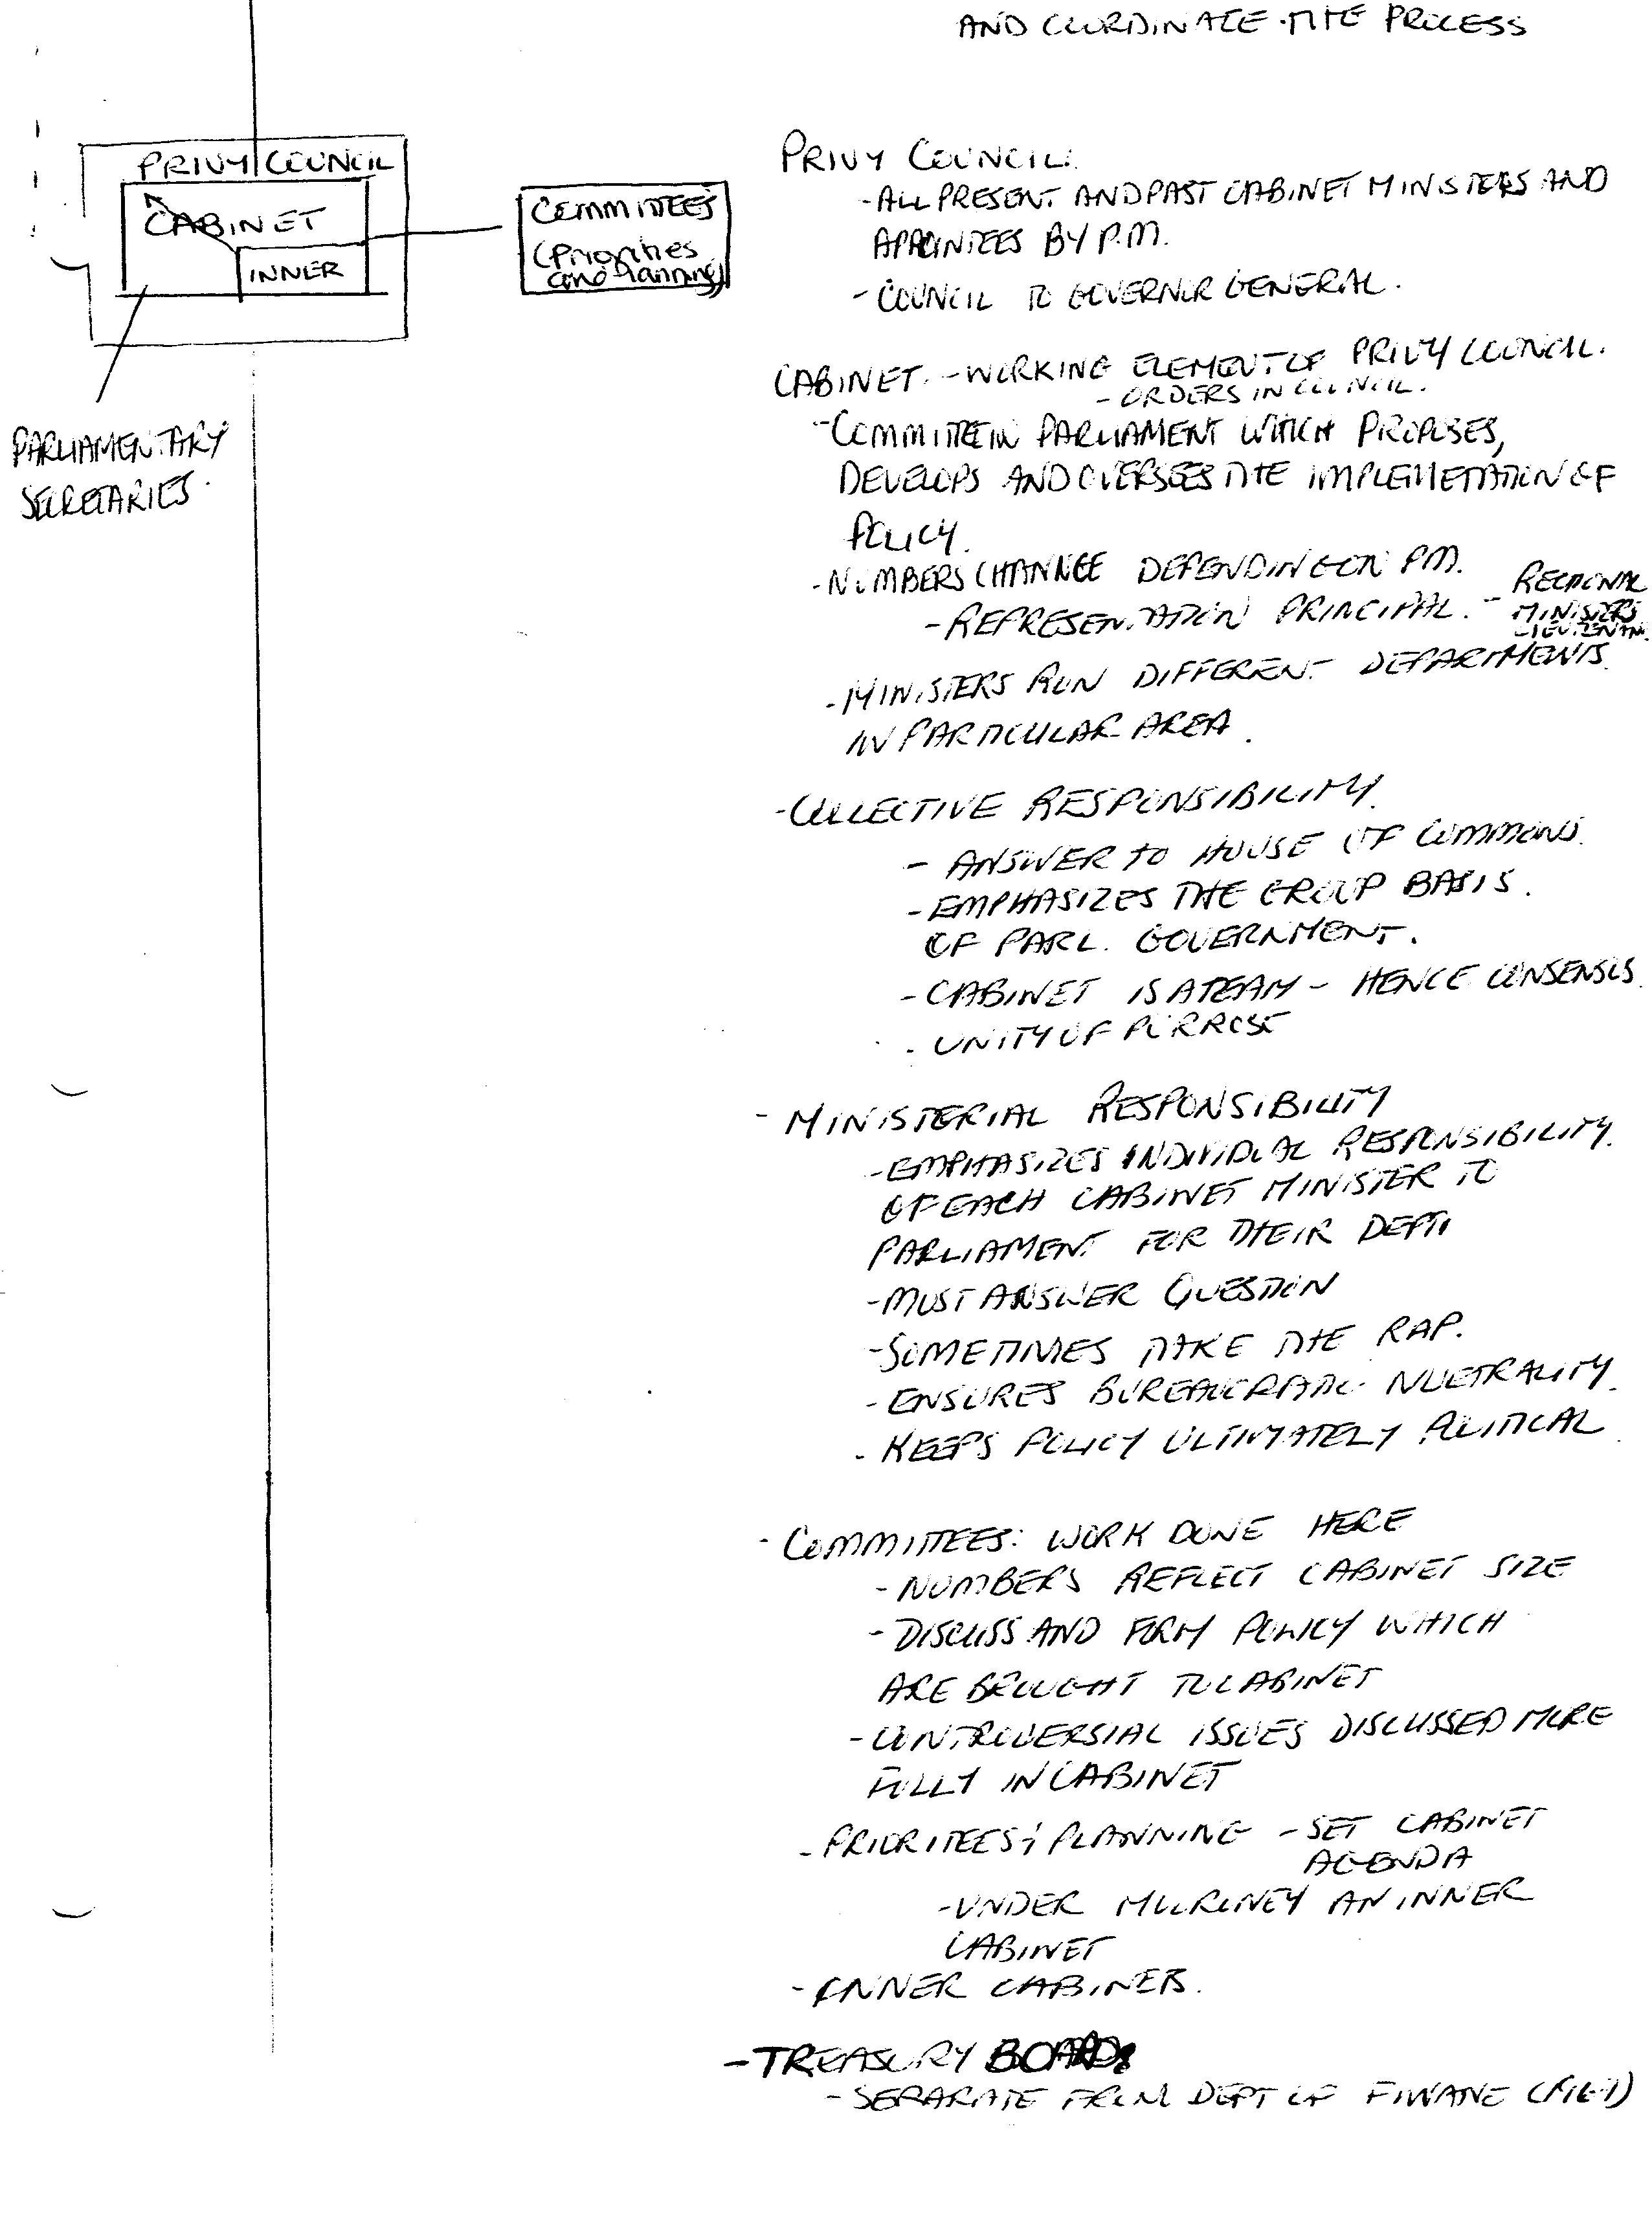 AND COORDINATE THE PROCESS
PRIVY COUNCIL
CABINET
INNER
COMMITTEES
(Priorities
and Planning)
PARLIAMENTARY
SECRETARIES.
PRIVY COUNCIL:
- ALL PRESENT AND PAST CABINET MINISTERS AND
APPOINTEES BY P.M.
- COUNCIL TO GOVERNOR GENERAL.
CABINET - WORKING ELEMENT OF PRIVY COUNCIL.
- ORDERS IN COUNCIL.
- COMMITTEE IN PARLIAMENT WHICH PROPOSES,
DEVELOPS AND OVERSEES THE IMPLEMETATION OF
POLICY.
- NUMBERS CHANNGE DEPENDING ON PM.
- REPRESENTATION PRINCIPAL. - REGIONAL
MINISTERS
LIEUTENANT
- MINISTERS RUN DIFFERENT DEPARTMENTS
IN PARTICULAR AREA.
- COLLECTIVE RESPONSIBILITY
- ANSWER TO HOUSE OF COMMONS.
- EMPHASIZES THE GROUP BASIS.
OF PARL. GOVERNMENT.
- CABINET IS A TEAM - HENCE CONSENSUS
- UNITY OF PURPOSE
- MINISTERIAL RESPONSIBILITY
- EMPHASIZES INDIVIDUAL RESPONSIBILITY
OF EACH CABINET MINISTER TO
PARLIAMENT FOR THEIR DEPT.
- MUST ANSWER QUESTION
- SOMETIMES TAKE THE RAP.
- ENSURES BUREAUCRATIC NUETRALITY
- KEEPS POLICY ULTIMATELY POLITICAL
- COMMITTEES: WORK DONE HERE
- NUMBERS REFLECT CABINET SIZE
- DISCUSS AND FORM POLICY WHICH
ARE BROUGHT TO CABINET
- CONTROVERSIAL ISSUES DISCUSSED MORE
FULLY IN CABINET
- PRIORITEES & PLANNING - SET CABINET
AGENDA
- UNDER MULRONEY AN INNER
CABINET
- INNER CABINETS.
- TREASURY BOARD:
- SEPARATE FROM DEPT OF FINANE